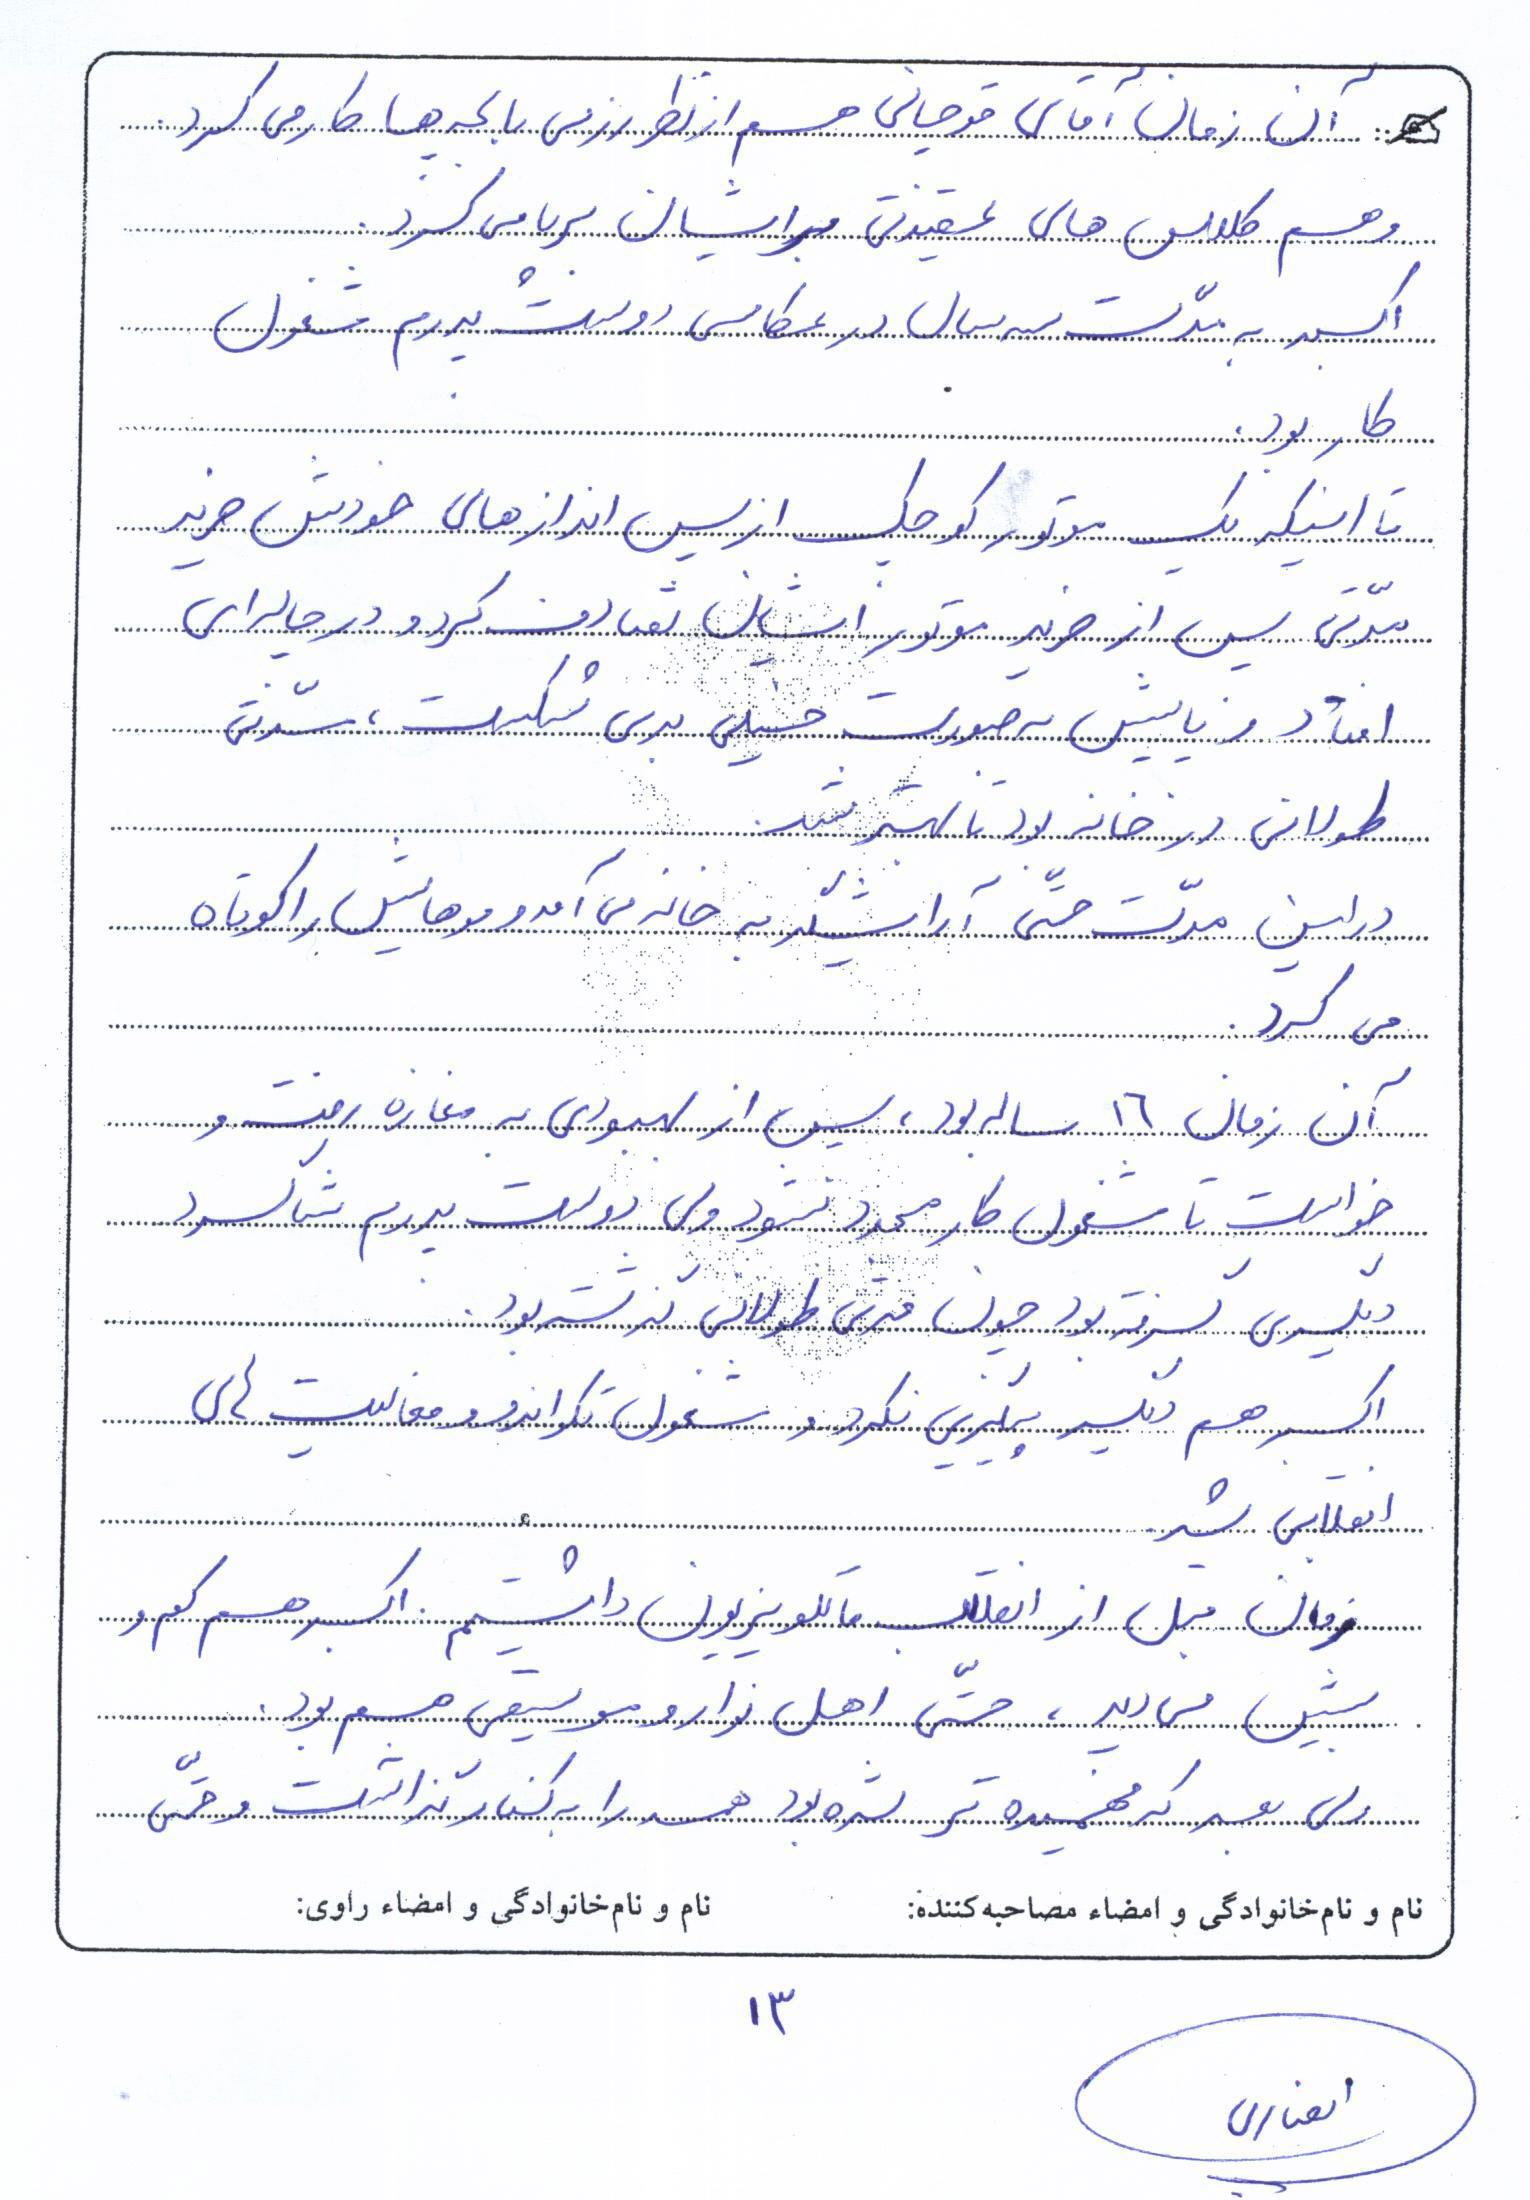 آن زمان آقای قوچانی هم از نظر رزمی با بچه‌ها کار می کرد.
و هم کلاس های عقیدتی برایشان برپا می کرد.
اکبر به مدّت سه سال در عکاسی دوست پدرم مشغول
کار بود.
تا اینکه یک موتور کوچک از پس اندازهای خودش خرید
مدّتی پس از خرید موتور ایشان تصادف کرد و در چاله‌ای
افتاد و پایش به صورت خیلی بدی شکست، مدّتی
طولانی در خانه بود تا بهتر شد.
در این مدّت حتّی آرایشگر به خانه می آمد و موهایش را کوتاه
می کرد.
آن زمان ۱۶ ساله بود، پس از بهبودی به مغازه رفت و
خواست تا مشغول کار مجدد شود ولی دوست پدرم شاگرد
دیگری گرفته بود چون مدتی طولانی گذشته بود.
اکبر هم دیگر پیگیری نکرد و مشغول تکواندو و فعالیت های
انقلابی شد.
زمان قبل از انقلاب ما تلویزیون داشتیم. اکبر هم کم و
بیش می دید، حتّی اهل نوار و موسیقی هم بود.
ولی بعد که فهمیده تر شده بود همه را به کنار گذاشت و حتّی
نام و نام‌خانوادگی و امضاء مصاحبه‌کننده: نام و نام‌خانوادگی و امضاء راوی:
۱۳
انصاری